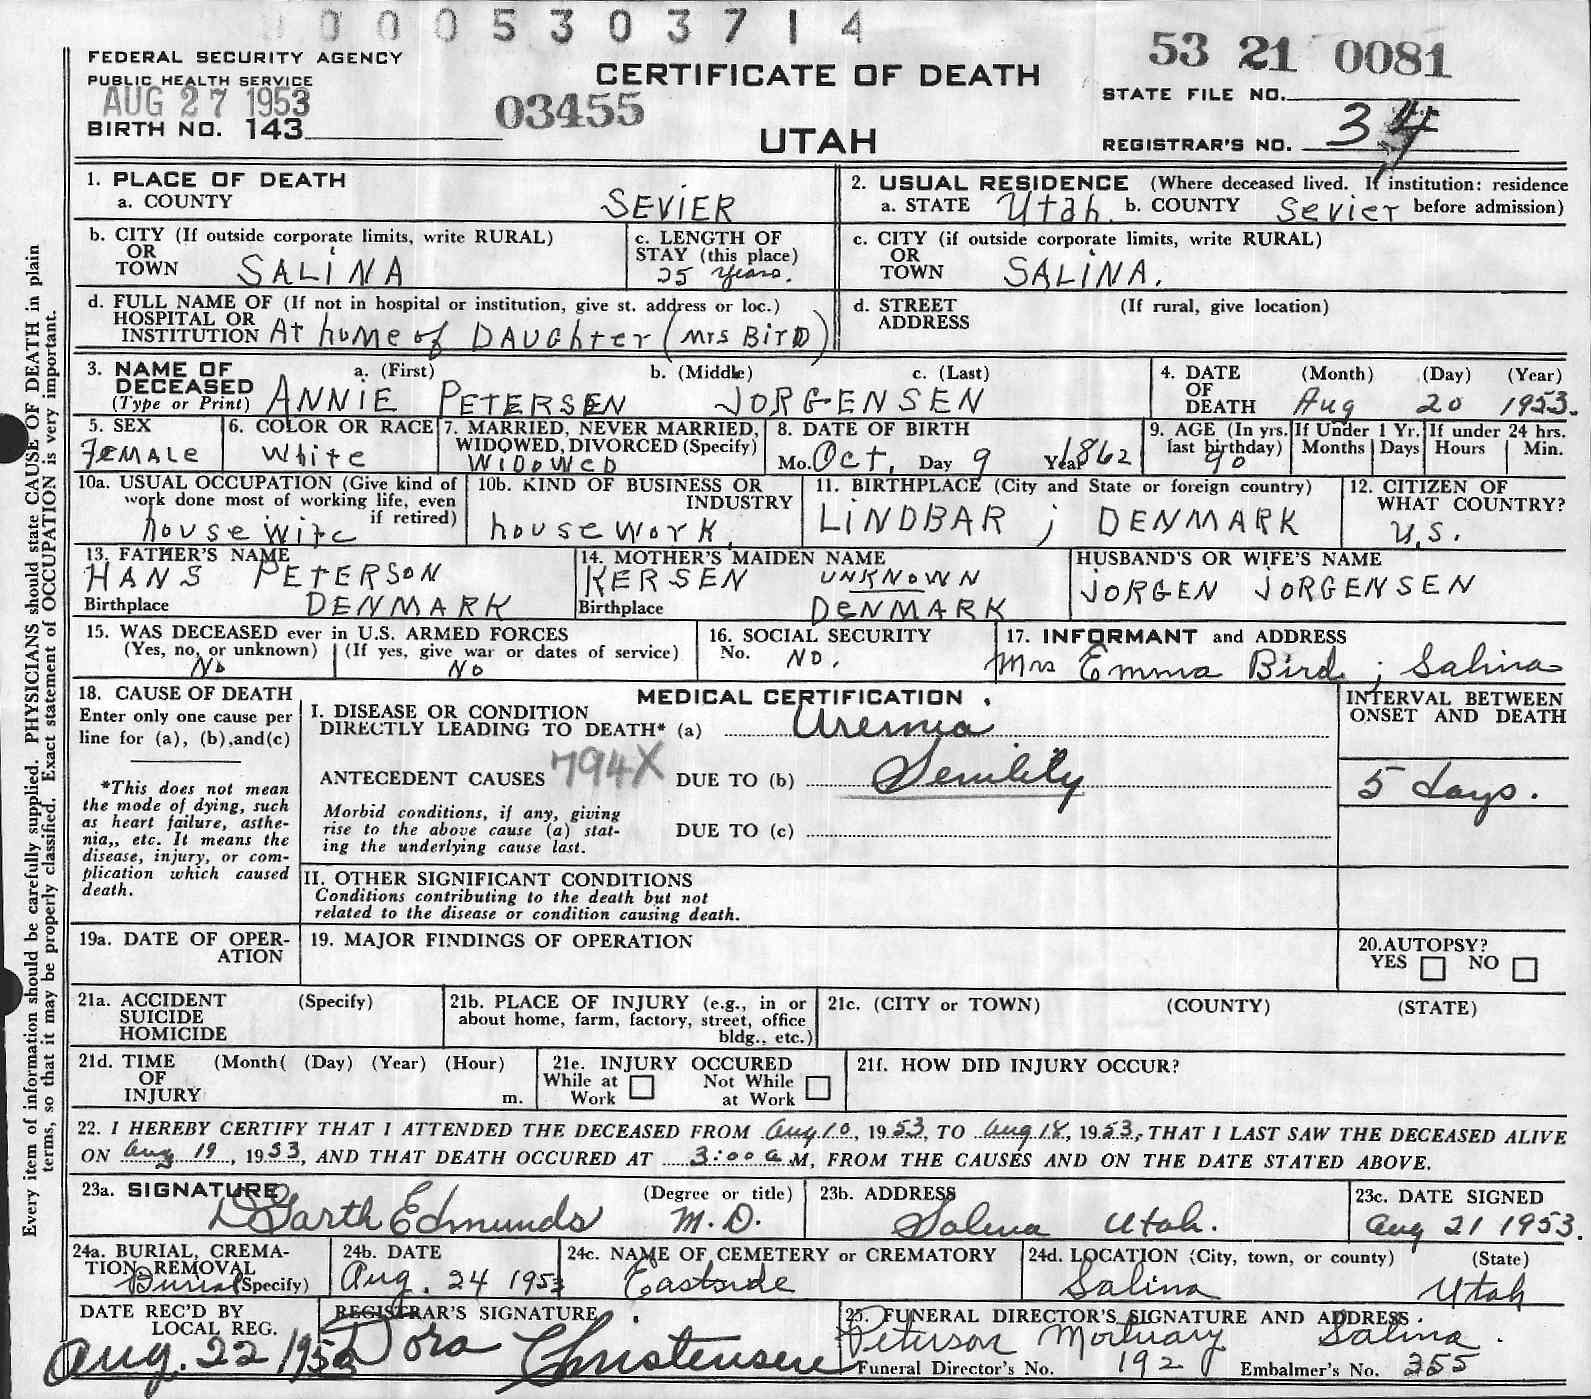 0 0 0 5 3 0 3 7 1 4
FEDERAL SECURITY AGENCY
PUBLIC HEALTH SERVICE
AUG 27 1953
BIRTH NO. 143
CERTIFICATE OF DEATH
03455
UTAH
53 21 0081
STATE FILE NO.
REGISTRAR'S NO. 34
Every item of information should be carefully supplied. PHYSICIANS should state CAUSE OF DEATH in plain
terms, so that it may be properly classified. Exact statement of OCCUPATION is very important.
1. PLACE OF DEATH
a. COUNTY SEVIER
2. USUAL RESIDENCE (Where deceased lived. If institution: residence
a. STATE Utah b. COUNTY Sevier before admission)
b. CITY (If outside corporate limits, write RURAL)
OR
TOWN SALINA
c. LENGTH OF
STAY (this place)
25 years.
c. CITY (if outside corporate limits, write RURAL)
OR
TOWN SALINA.
d. FULL NAME OF (If not in hospital or institution, give st. address or loc.)
HOSPITAL OR
INSTITUTION At home of DAUGhter (Mrs BirD)
d. STREET (If rural, give location)
ADDRESS
3. NAME OF a. (First) b. (Middle) c. (Last)
DECEASED
(Type or Print) ANNIE PETERSEN JORGENSEN
4. DATE (Month) (Day) (Year)
OF
DEATH Aug 20 1953.
5. SEX
FEMALE
6. COLOR OR RACE
White
7. MARRIED, NEVER MARRIED,
WIDOWED, DIVORCED (Specify)
WIDOWED
8. DATE OF BIRTH
Mo. Oct. Day 9 Year 1862
9. AGE (In yrs.
last birthday)
90
If Under 1 Yr.
Months Days
If under 24 hrs.
Hours Min.
10a. USUAL OCCUPATION (Give kind of
work done most of working life, even
if retired)
housewife
10b. KIND OF BUSINESS OR
INDUSTRY
housework.
11. BIRTHPLACE (City and State or foreign country)
LINDBAR ; DENMARK
12. CITIZEN OF
WHAT COUNTRY?
U.S.
13. FATHER'S NAME
HANS PETERSON
Birthplace DENMARK
14. MOTHER'S MAIDEN NAME
KERSEN UNKNOWN
Birthplace DENMARK
HUSBAND'S OR WIFE'S NAME
JORGEN JORGENSEN
15. WAS DECEASED ever in U.S. ARMED FORCES
(Yes, no, or unknown) (If yes, give war or dates of service)
No No
16. SOCIAL SECURITY
No. NO.
17. INFORMANT and ADDRESS
Mrs Emma Bird ; Salina
18. CAUSE OF DEATH
Enter only one cause per
line for (a), (b), and(c)
*This does not mean
the mode of dying, such
as heart failure, asthe-
nia,, etc. It means the
disease, injury, or com-
plication which caused
death.
MEDICAL CERTIFICATION
I. DISEASE OR CONDITION
DIRECTLY LEADING TO DEATH* (a) Uremia
ANTECEDENT CAUSES 794X DUE TO (b) Senility
Morbid conditions, if any, giving
rise to the above cause (a) stat-
ing the underlying cause last.
DUE TO (c)
INTERVAL BETWEEN
ONSET AND DEATH
5 days.
II. OTHER SIGNIFICANT CONDITIONS
Conditions contributing to the death but not
related to the disease or condition causing death.
19a. DATE OF OPER-
ATION
19. MAJOR FINDINGS OF OPERATION
20.AUTOPSY?
YES NO
21a. ACCIDENT (Specify)
SUICIDE
HOMICIDE
21b. PLACE OF INJURY (e.g., in or
about home, farm, factory, street, office
bldg., etc.)
21c. (CITY or TOWN) (COUNTY) (STATE)
21d. TIME (Month( (Day) (Year) (Hour)
OF
INJURY m.
21e. INJURY OCCURED
While at Work Not While at Work
21f. HOW DID INJURY OCCUR?
22. I HEREBY CERTIFY THAT I ATTENDED THE DECEASED FROM Aug 10, 1953, TO Aug 18, 1953, THAT I LAST SAW THE DECEASED ALIVE
ON Aug 19, 1953, AND THAT DEATH OCCURED AT 3:00 a M, FROM THE CAUSES AND ON THE DATE STATED ABOVE.
23a. SIGNATURE (Degree or title)
D Garth Edmunds M.D.
23b. ADDRESS
Salina Utah.
23c. DATE SIGNED
Aug 21 1953.
24a. BURIAL, CREMA-
TION, REMOVAL
Burial (Specify)
24b. DATE
Aug. 24 1953
24c. NAME OF CEMETERY or CREMATORY
Eastside
24d. LOCATION (City, town, or county) (State)
Salina Utah
DATE REC'D BY
LOCAL REG.
Aug. 22 1953
REGISTRAR'S SIGNATURE
Dora Christensen
25. FUNERAL DIRECTOR'S SIGNATURE AND ADDRESS
Peterson Mortuary Salina.
Funeral Director's No. 192 Embalmer's No. 355